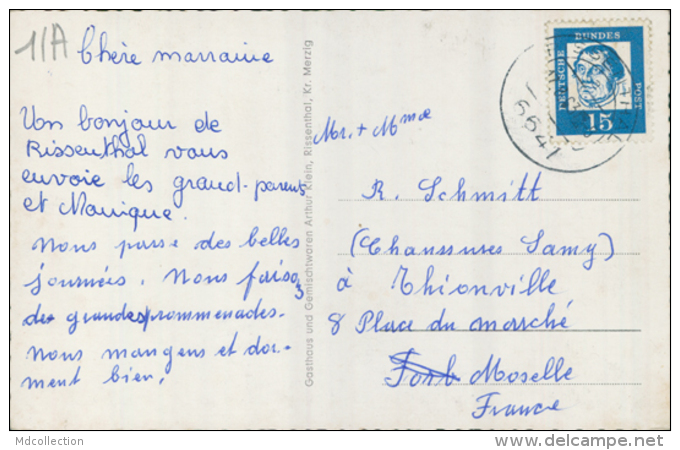 1/A
Chère marraine
Un bonjour de
Rissenthal vous
envoie les grand-parents
et Monique.
Nous passe des belles
journées. Nous faisons
des grandes prommenades.
Nous mangens et dor-
ment bien.
Gasthaus und Gemischtwaren Arthur Klein, Rissenthal, Kr. Merzig
DEUTSCHE BUNDESPOST
15
6641
Mr. + Mme
R. Schmitt
(Chaussures Samy)
à Thionville
8 Place du marché
Forb Moselle
France
Mdcollection
delcampe.net